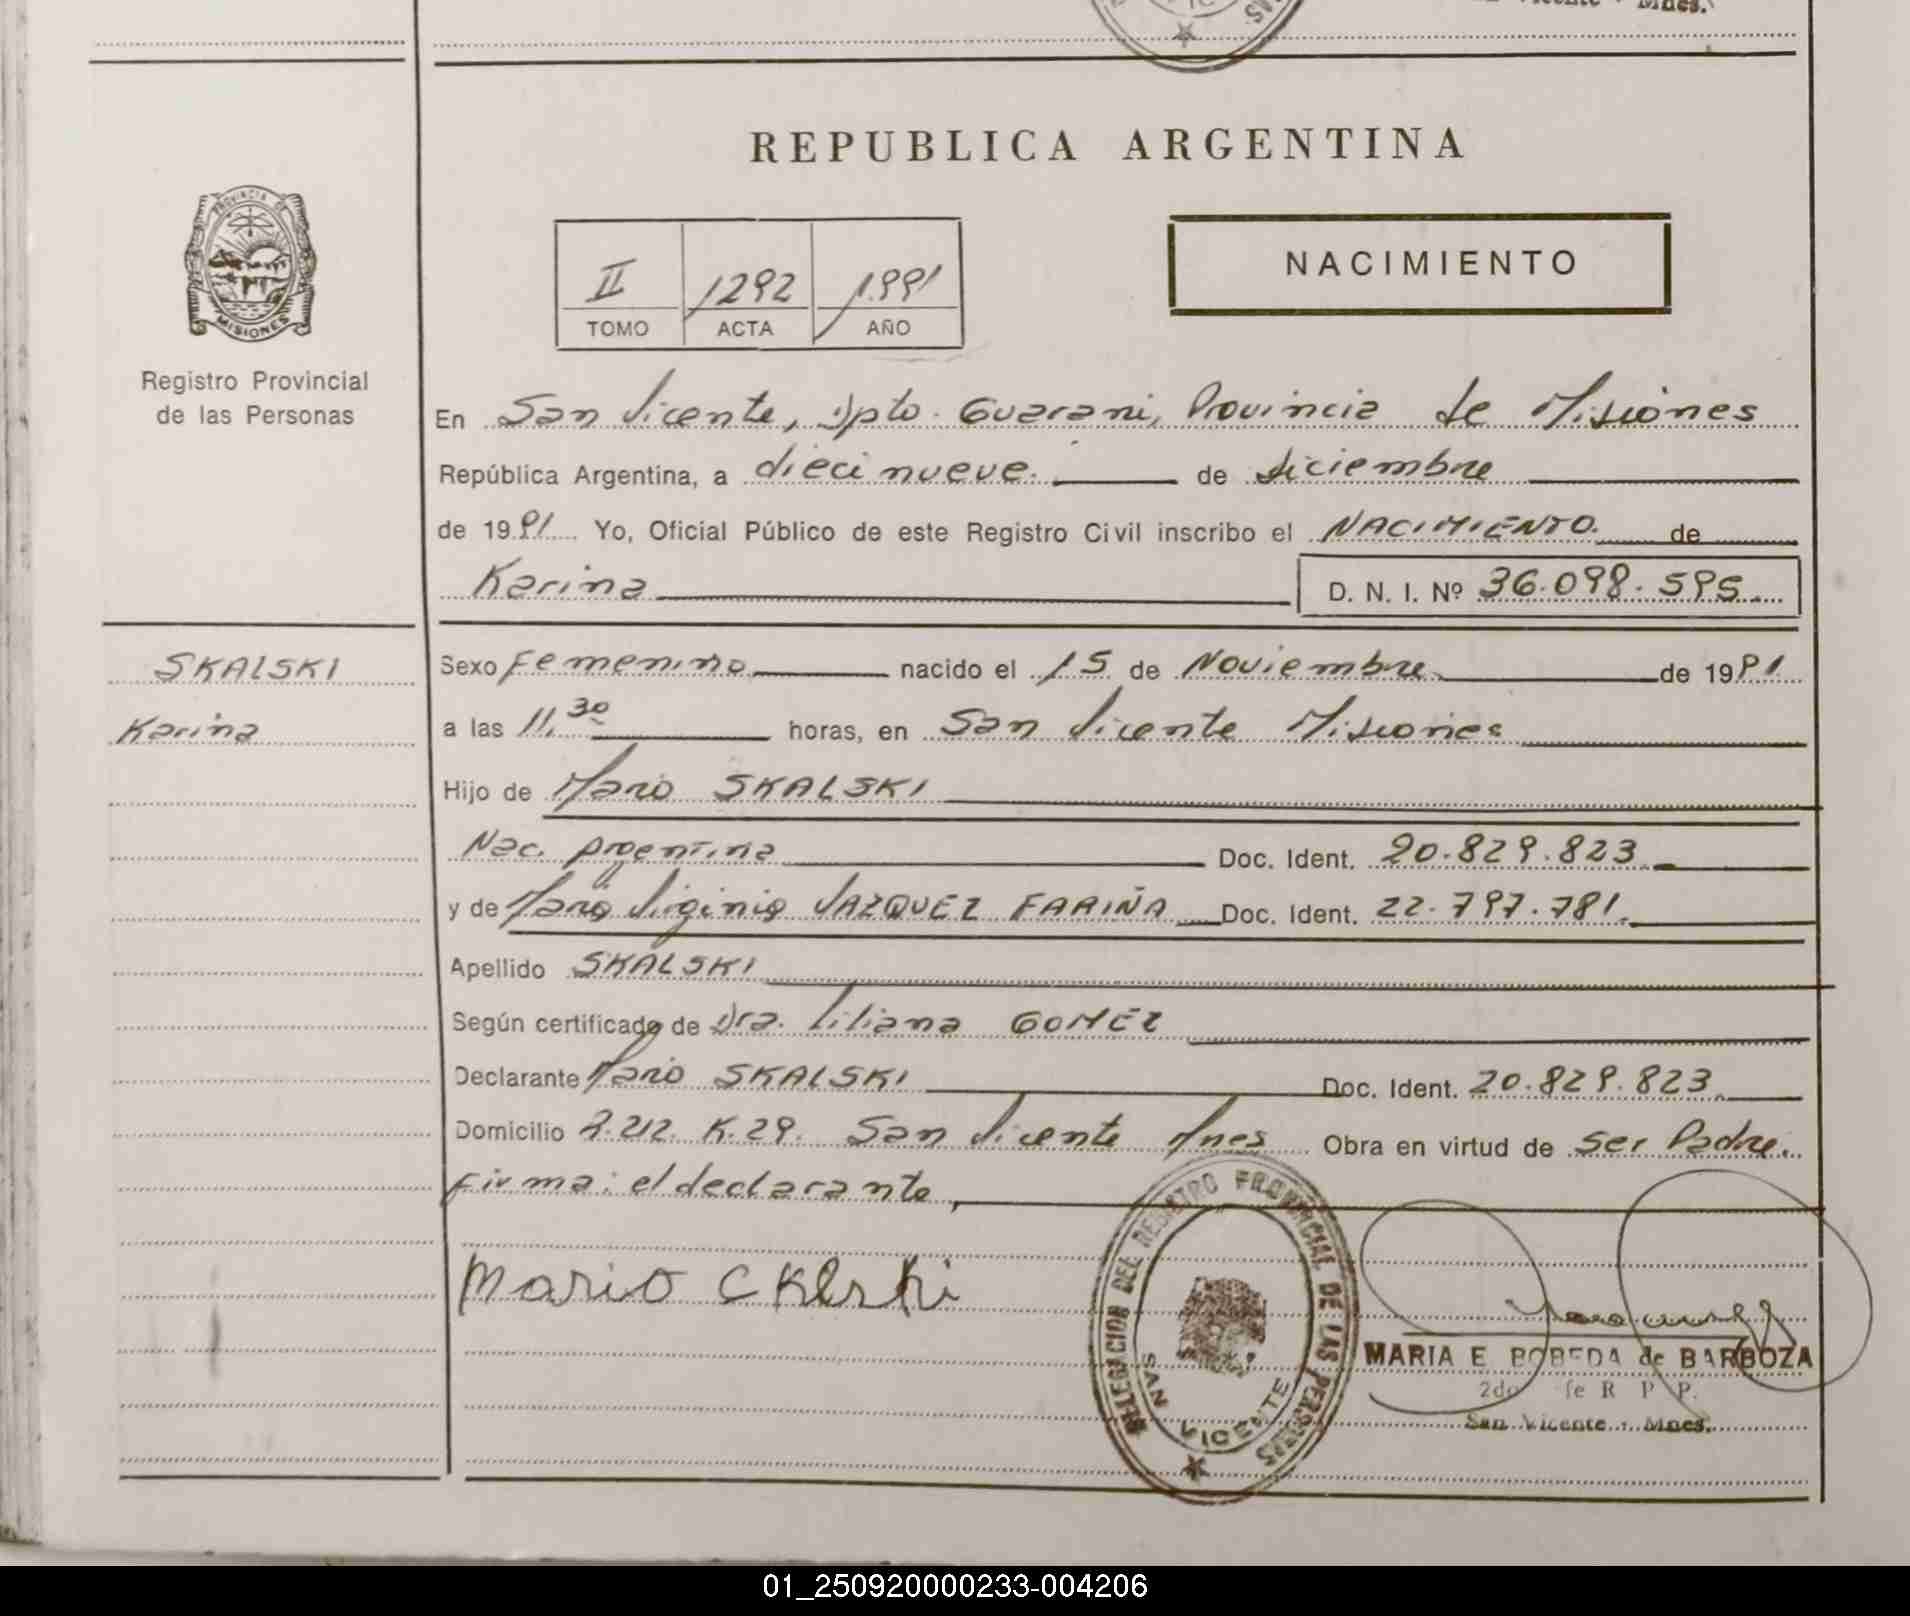 Mnes.
REPUBLICA ARGENTINA
PROVINCIA DE
MISIONES
Registro Provincial
de las Personas
II 1292 1.991
TOMO ACTA AÑO
NACIMIENTO
En San Vicente, Dpto. Guarani, Provincia de Misiones
República Argentina, a dieci nueve. de diciembre
de 1991 Yo, Oficial Público de este Registro Civil inscribo el NACIMIENTO. de
Karina D. N. I. Nº 36.098.595.
SKALSKI
Karina
Sexo Femenino nacido el 15 de Noviembre de 1991
a las 11,30 horas, en San Vicente Misiones
Hijo de Mario SKALSKI
Nac. Argentina Doc. Ident. 20.829.823.
y de Maria Virginia VAZQUEZ FARIÑA Doc. Ident. 22.797.781.
Apellido SKALSKI
Según certificado de Dra. Liliana GOMEZ
Declarante Mario SKALSKI Doc. Ident. 20.829.823.
Domicilio K.29. San Vicente Mnes Obra en virtud de ser Padre.
Firma: el declarante,
Mario
DELEGACION DEL REGISTRO PROVINCIAL DE LAS PERSONAS
SAN VICENTE
MARIA E BOBEDA de BARBOZA
2do R P P.
San Vicente - Mnes.
01_250920000233-004206